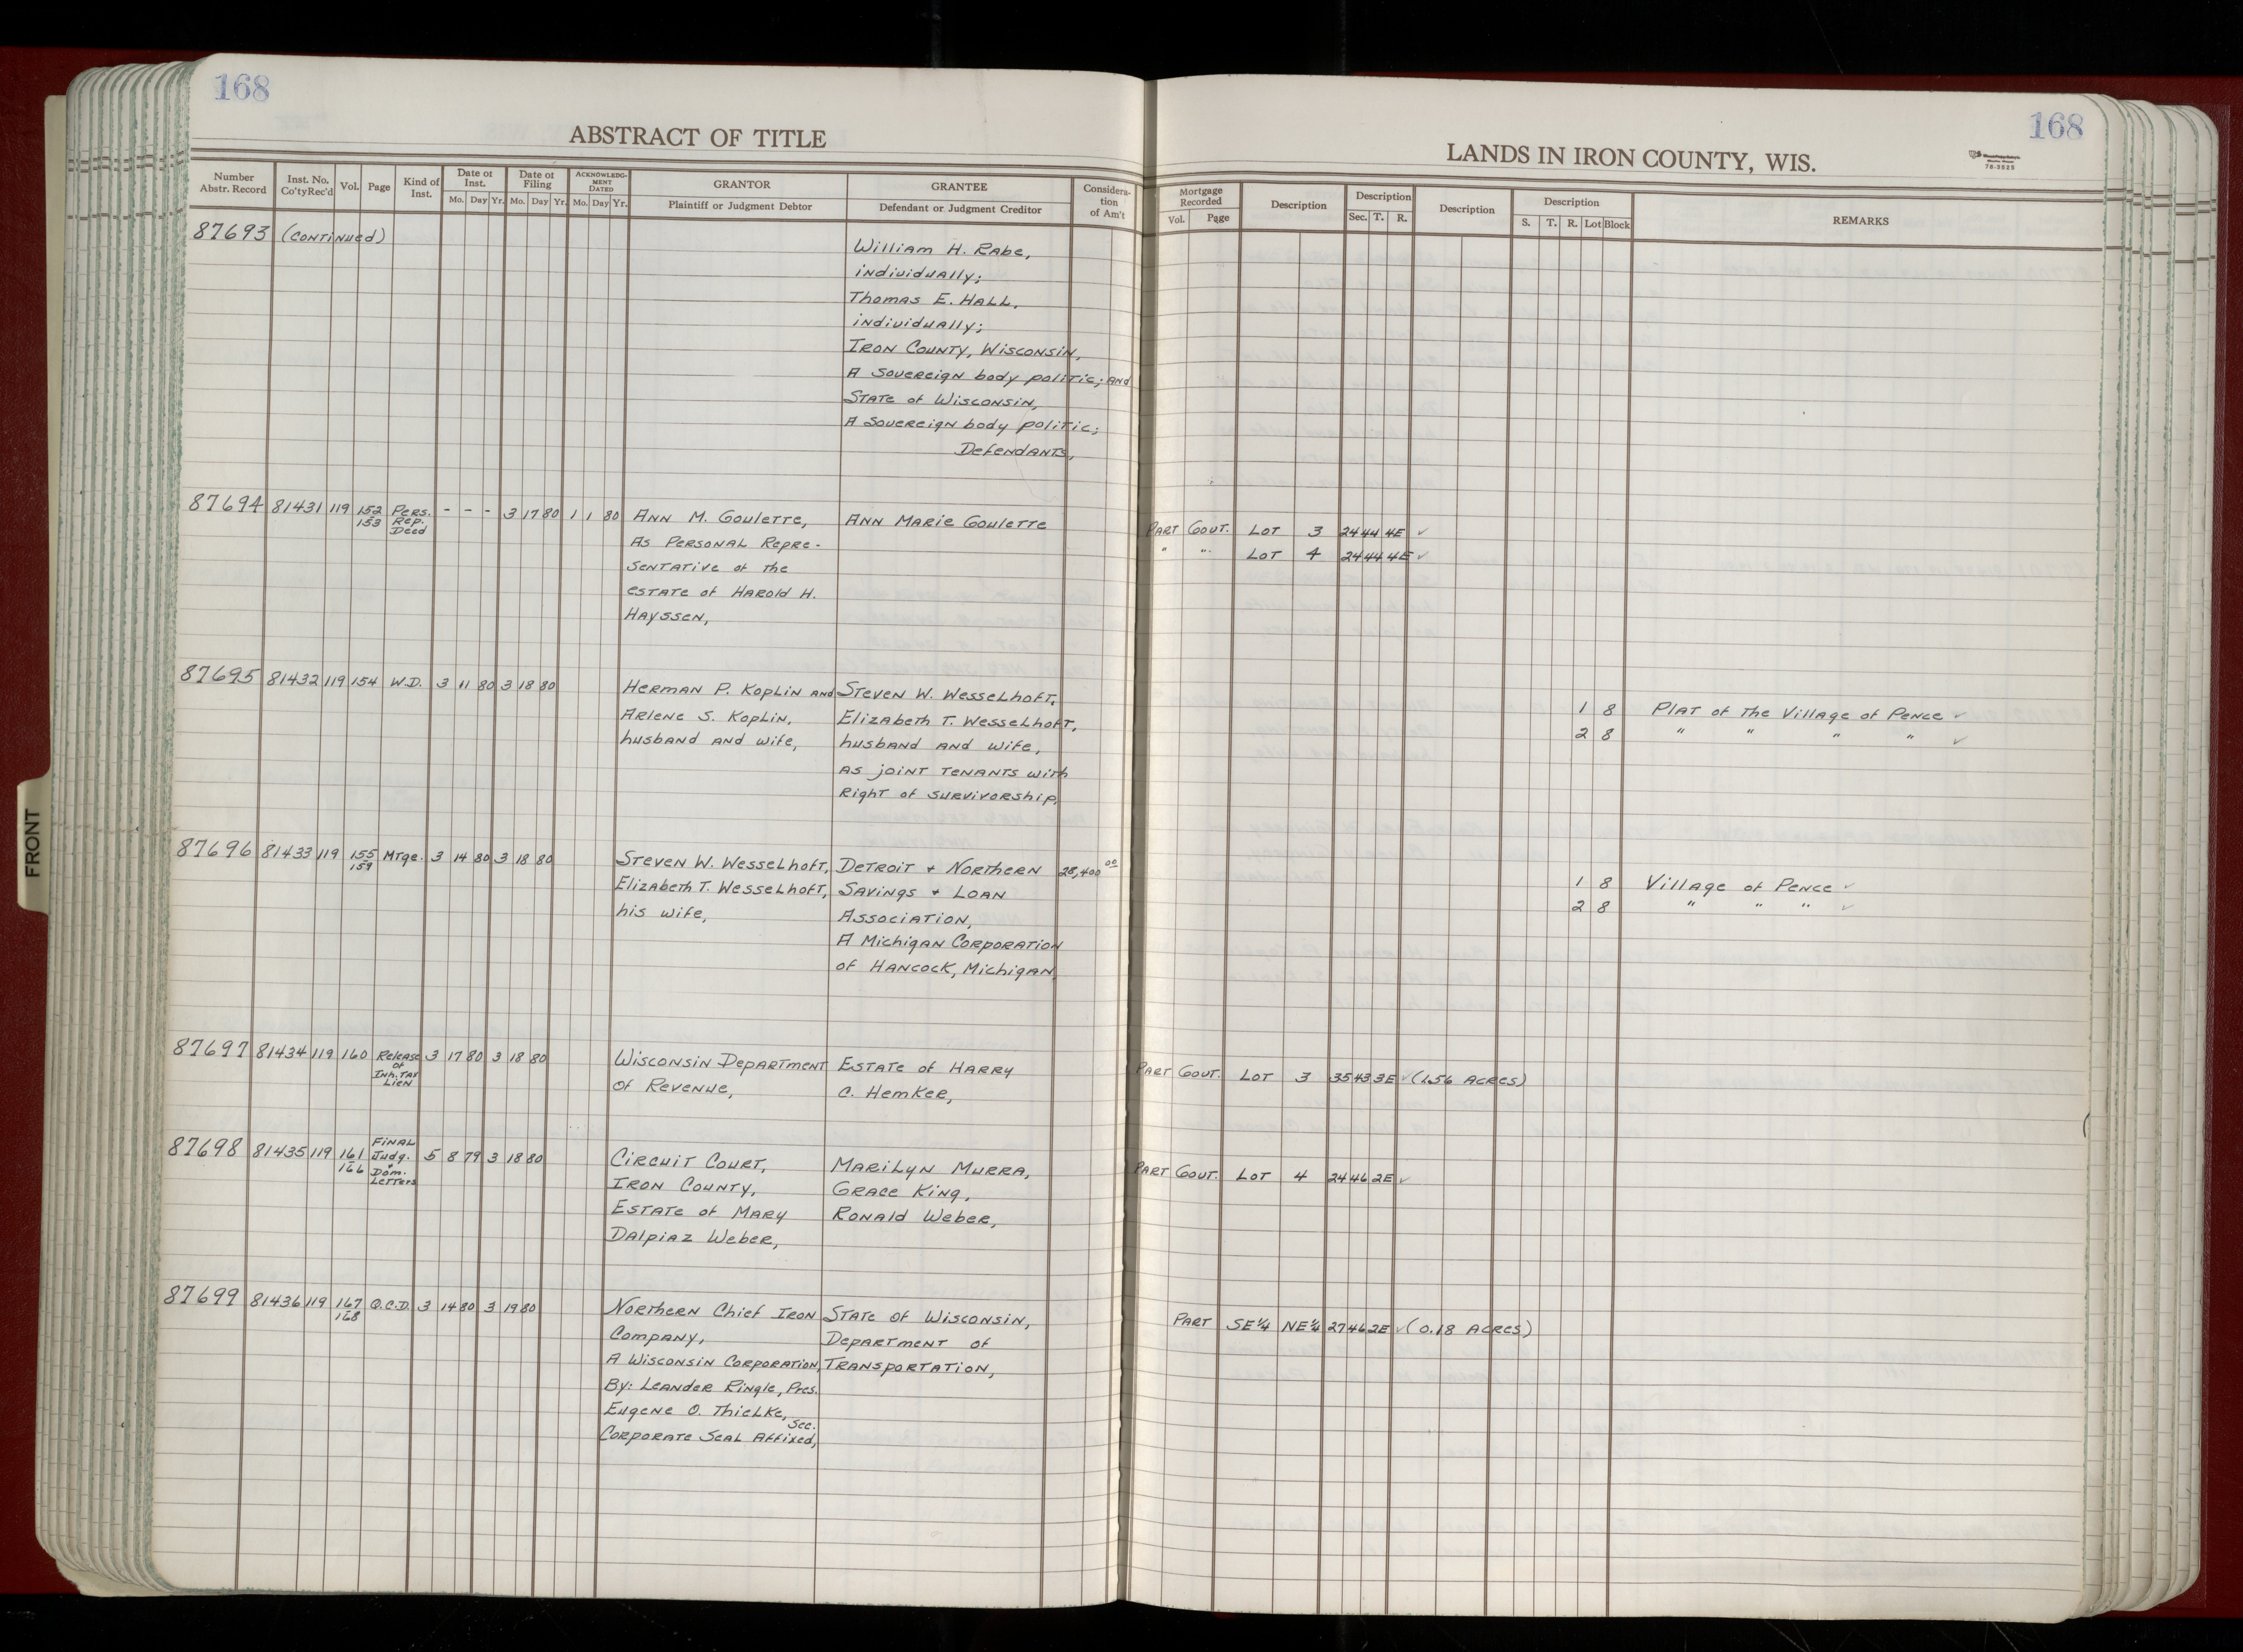 168
168
ABSTRACT OF TITLE
LANDS IN IRON COUNTY, WIS.
76-3525
Number Abstr. Record | Inst. No. Co'ty Rec'd | Vol. | Page | Kind of Inst. | Date of Inst. Mo. Day Yr. | Date of Filing Mo. Day Yr. | ACKNOWLEDGMENT DATED Mo. Day Yr. | GRANTOR Plaintiff or Judgment Debtor | GRANTEE Defendant or Judgment Creditor | Consideration of Am't
Mortgage Recorded Vol. Page | Description | Description Sec. T. R. | Description | Description S. T. R. Lot Block | REMARKS
87693 (Continued)
William H. Rabe,
individually;
Thomas E. Hall,
individually;
Iron County, Wisconsin,
A Sovereign body politic; and
State of Wisconsin,
A Sovereign body politic;
Defendants,
87694 81431 119 152 153 Pers. Rep. Deed - - - 3 17 80 1 1 80 Ann M. Goulette, Ann Marie Goulette Part Gout. Lot 3 24 44 4E ✓
As Personal Repre- " " Lot 4 24 44 4E ✓
sentative of the
estate of Harold H.
Hayssen,
87695 81432 119 154 W.D. 3 11 80 3 18 80 Herman P. Koplin and Steven W. Wesselhoft, 1 8 Plat of the Village of Pence ✓
Arlene S. Koplin, Elizabeth T. Wesselhoft, 2 8 " " " " ✓
husband and wife, husband and wife,
as joint tenants with
Right of survivorship,
87696 81433 119 155 159 Mtge. 3 14 80 3 18 80 Steven W. Wesselhoft, Detroit + Northern 28,400 00 1 8 Village of Pence ✓
Elizabeth T. Wesselhoft, Savings + Loan 2 8 " " " ✓
his wife, Association,
A Michigan Corporation
of Hancock, Michigan,
87697 81434 119 160 Release of Inh. Tax Lien 3 17 80 3 18 80 Wisconsin Department Estate of Harry Part Gout. Lot 3 35 43 3E ✓ (1.56 Acres)
of Revenue, C. Hemker,
87698 81435 119 161 166 Final Judg. + Dom. Letters 5 8 79 3 18 80 Circuit Court, Marilyn Murra, Part Gout. Lot 4 24 46 2E ✓
Iron County, Grace King,
Estate of Mary Ronald Weber,
Dalpiaz Weber,
87699 81436 119 167 168 Q.C.D. 3 14 80 3 19 80 Northern Chief Iron State of Wisconsin, Part SE¼ NE¼ 27 46 2E ✓ (0.18 Acres)
Company, Department of
A Wisconsin Corporation, Transportation,
By: Leander Ringle, Pres.
Eugene O. Thielke, Sec.
Corporate Seal Affixed,
FRONT